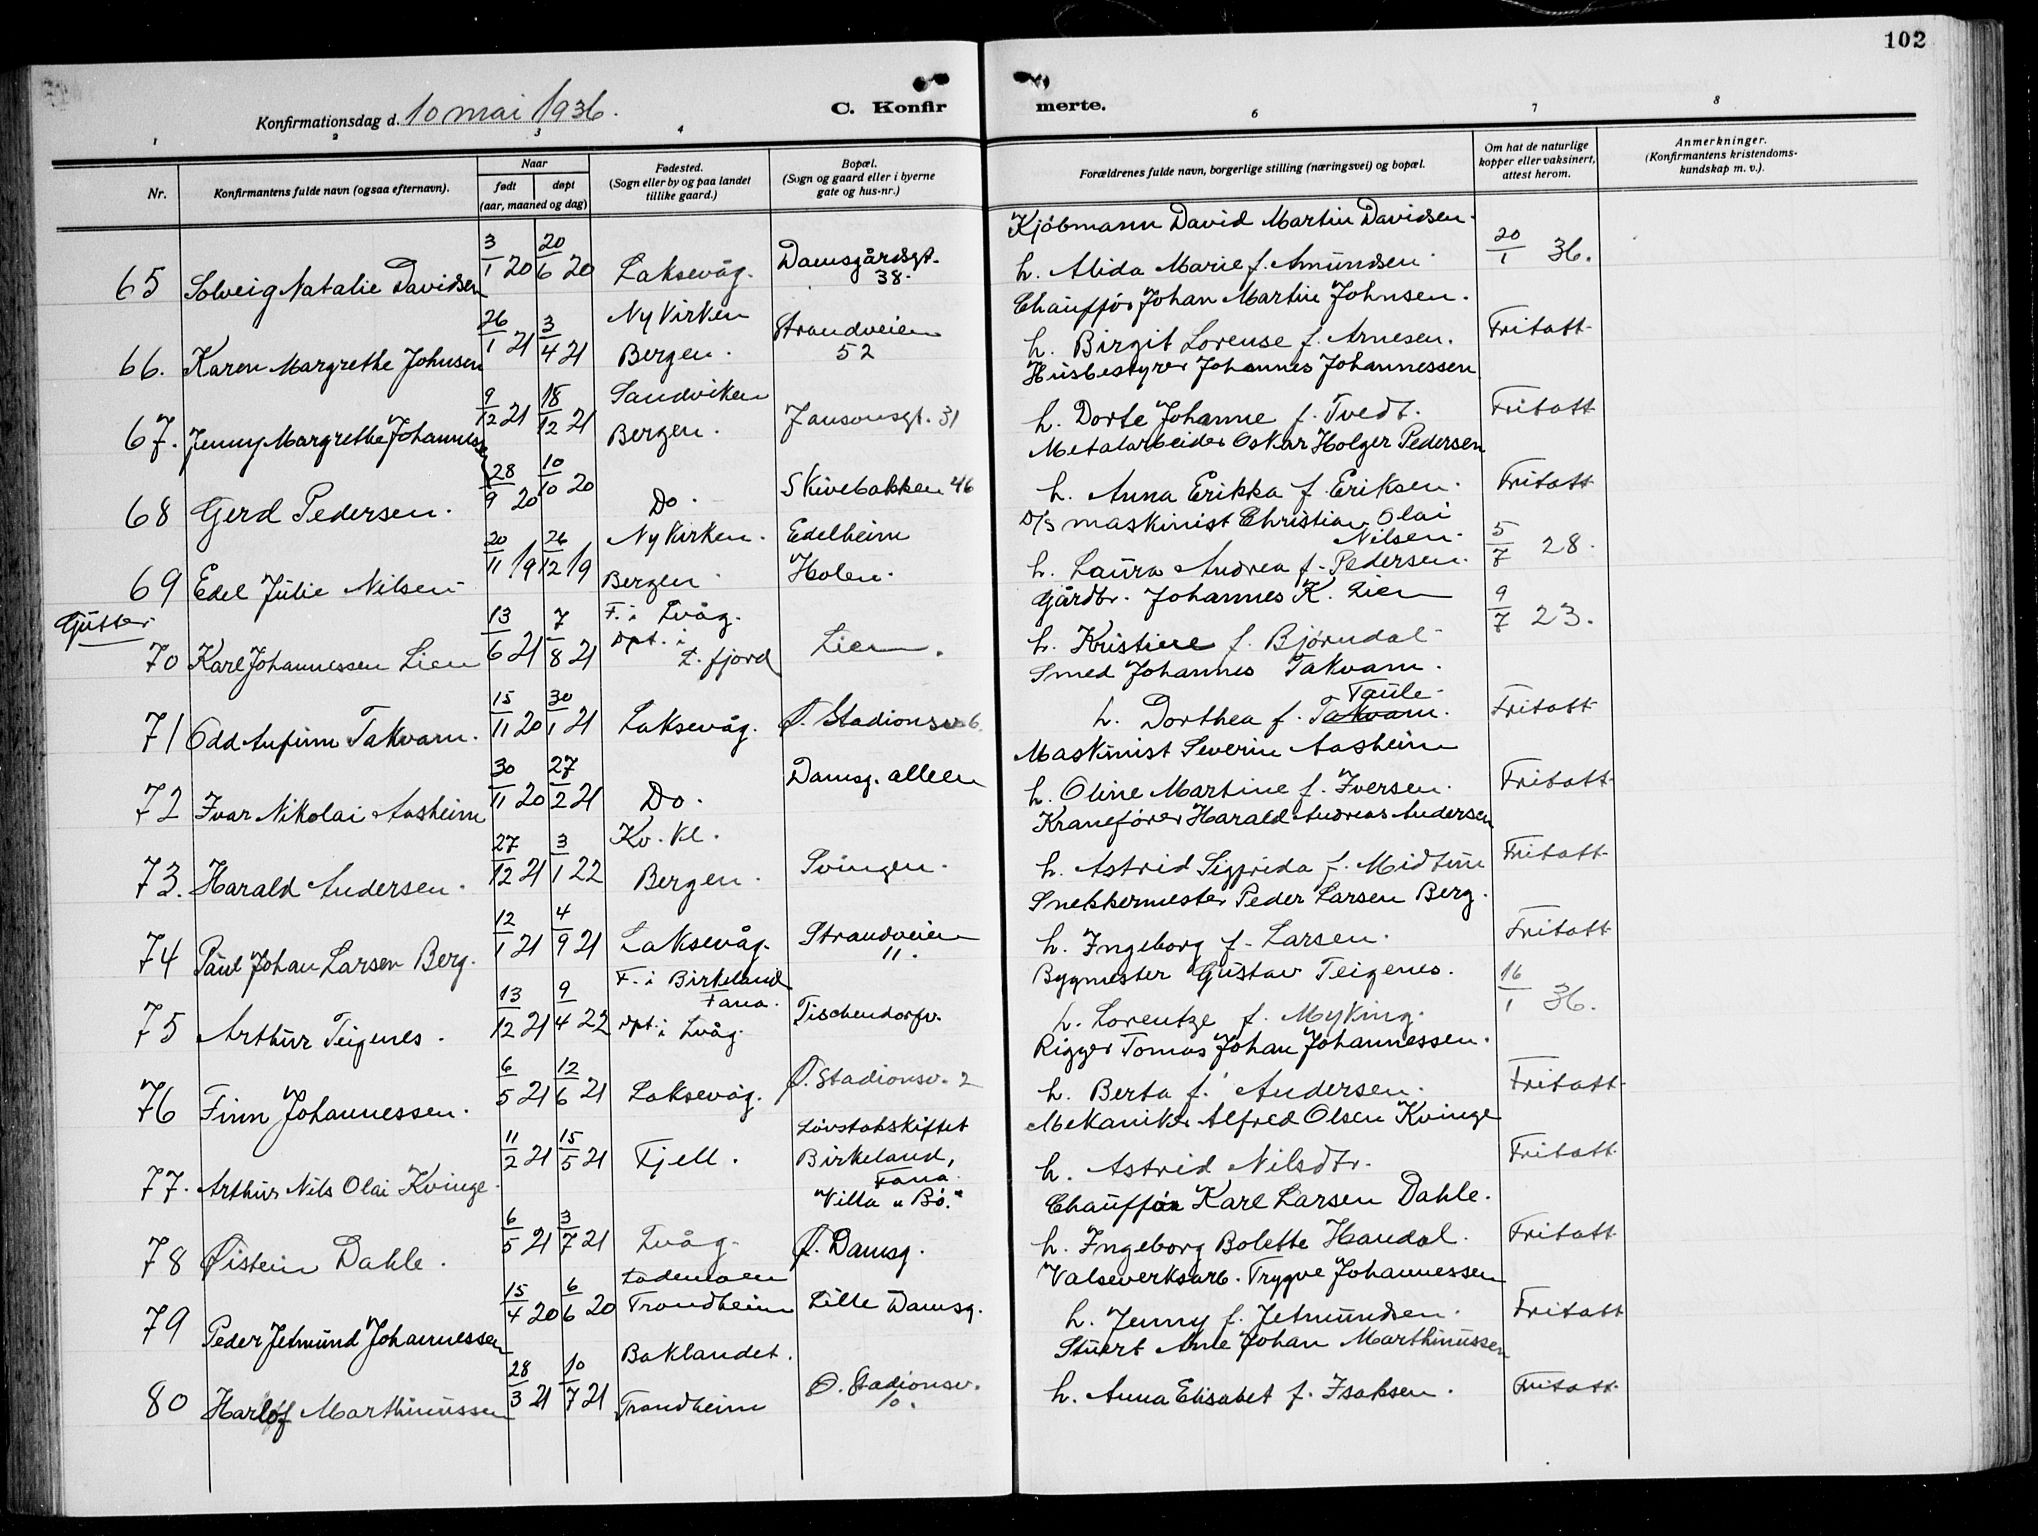 102
Konfirmationsdag d. 10 mai 1936.
C. Konfir
merte.
1 2 3 4 6 7 8
Nr.
Konfirmantens fulde navn (ogsaa efternavn).
Naar
født døpt
(aar, maaned og dag)
Fødested.
(Sogn eller by og paa landet
tillike gaard.)
Bopæl.
(Sogn og gaard eller i byerne
gate og hus-nr.)
Forældrenes fulde navn, borgerlige stilling (næringsvei) og bopæl.
Om hat de naturlige
kopper eller vaksinert,
attest herom.
Anmerkninger.
(Konfirmantens kristendoms-
kundskap m. v.).
Kjöbmann David Martin Davidsen.
65 Solveig Natalie Davidsen 3/1 20 20/6 20 Laksevåg. Damsgårdsgt. 38. h. Alida Marie f. Amundsen. 20/1 36.
Chauffør Johan Martin Johnsen.
66. Karen Margrethe Johnsen 26/1 21 3/4 21 Nykirken Bergen. Strandveien 52 h. Birgit Lorense f. Arnesen. Fritatt
Husbestyrer Johannes Johannessen
67. Jenny Margrethe Johannessen 9/12 21 18/12 21 Sandviken Bergen. Jansonsgt. 31 h. Dorte Johanne f. Tvedt. Fritatt
Metalarbeider Oskar Holger Pedersen
68 Gerd Pedersen. 28/9 20 10/10 20 Do. Skivebakken 46 h. Anna Erikka f. Eriksen. Fritatt
D/s maskinist Christian Olai Nilsen.
69 Edel Julie Nilsen 20/11 19 26/12 19 Nykirken. Bergen. Edelheim Holen. h. Laura Andrea f. Pedersen. 5/7 28.
Gutter.
Gårdbr. Johannes K. Lien
70 Karl Johannessen Lien 13/6 21 7/8 21 F. i Lvåg. Dpt. i L. fjord Lien. h. Kristine f. Bjørndal 9/7 23.
Smed Johannes Takvam.
71 Odd Anfinn Takvam. 15/11 20 30/1 21 Laksevåg. Ø. Stadionsv. 6. h. Dorthea f. Takvam. Taule. Fritatt
Maskinist Severin Aasheim
72 Ivar Nikolai Aasheim 30/11 20 27/2 21 Do. Damsg. alleen h. Oline Martine f. Iversen. Fritatt
Kranefører Harald Andreas Andersen
73. Harald Andersen. 27/12 21 3/1 22 Kv. kl. Bergen. Svingen. h. Astrid Sigfrida f. Midtun Fritatt
Snekkermester Peder Larsen Berg.
74 Paul Johan Larsen Berg. 12/1 21 4/9 21 Laksevåg. Strandveien 11. h. Ingeborg f. Larsen. Fritatt
Bygmester Gustav Teigenes.
75 Arthur Teigenes. 13/12 21 9/4 22 F. i Birkeland Fana. Dpt. i Lvåg. Tischendorfv. h. Lorentze f. Myking. 16/1 36.
Rigger Tomas Johan Johannessen.
76 Finn Johannessen. 6/5 21 12/6 21 Laksevåg. Ø. Stadionsv. 2 h. Berta f. Andersen. Fritatt
Mekaniker Alfred Olsen Kvinge
77. Arthur Nils Olai Kvinge. 11/2 21 15/5 21 Fjell. Løvstakskiftet Birkeland, Fana. Villa "Bö." h. Astrid Nilsdtr. Fritatt
Chauffør Karl Larsen Dahle.
78 Øistein Dahle. 6/5 21 3/7 21 Lvåg. Ø. Damsg. h. Ingeborg Bolette Haudal. Fritatt
Valseverksarb. Trygve Johannessen
79 Peder Jetmund Johannessen 15/4 20 6/6 20 Lademoen Trondheim Lille Damsg. h. Jenny f. Jetmundsen. Fritatt
Stuert Arne Johan Marthinussen
80 Harlof Marthinussen 28/3 21 10/7 21 Baklandet. Trondheim Ø. Stadionsv. 10. h. Anna Elisabet f. Isaksen. Fritatt